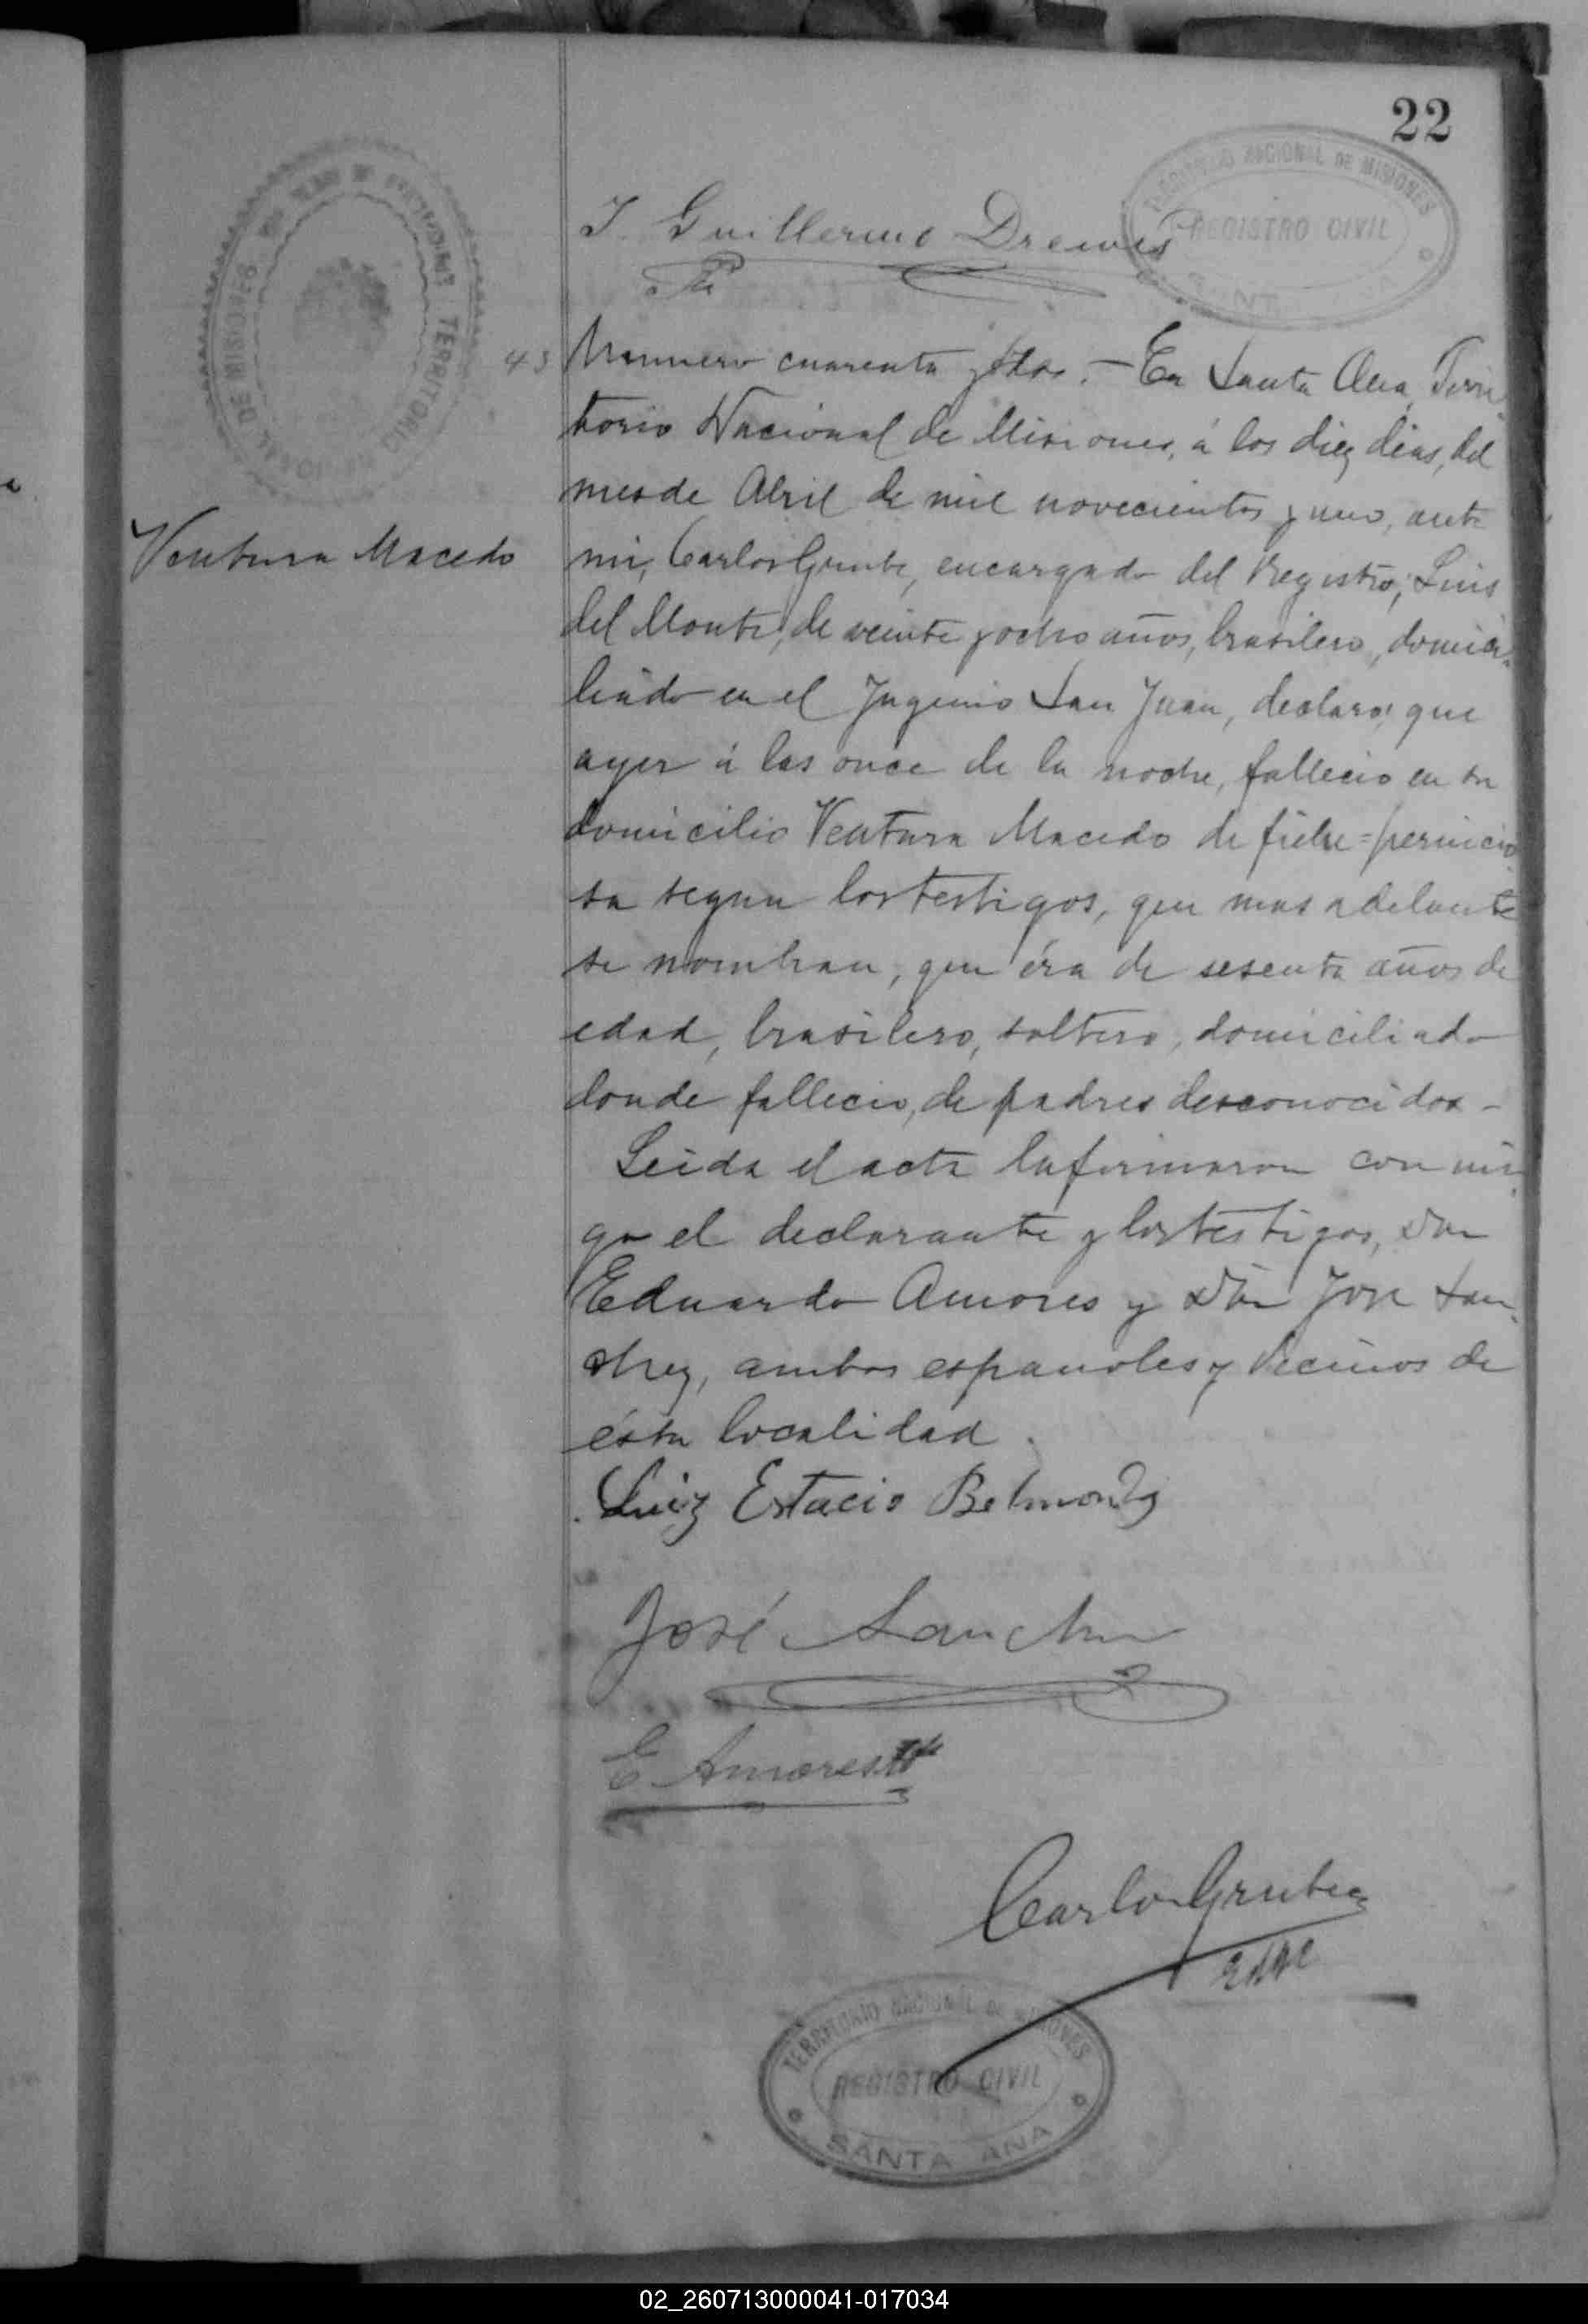 22
TERRITORIO NACIONAL DE MISIONES
REGISTRO CIVIL
J. Guillermo Drewes
43
Numero cuarenta y dos. – En Santa Ana, Terri-
torio Nacional de Misiones, á los diez dias, del
mes de Abril de mil novecientos y uno, ante
Ventura Macedo
mi, Carlos Grube, encargado del Registro, Luis
del Monte, de veinte y ocho años, brasilero, domici-
liado en el Ingenio San Juan, declaró que
ayer á las once de la noche, fallecio en su
domicilio Ventura Macedo de fiebre=pernicio
sa segun los testigos, que mas adelante
se nombran, que éra de sesenta años de
edad, brasilero, soltero, domiciliado
donde fallecio, de padres desconocidos –
Leida el acta la firmaron con mi-
go el declarante y los testigos, Don
Eduardo Amores y Don Jose San-
chez, ambos españoles y vecinos de
ésta localidad.
Luiz Estacio Belmonte
José Sanchez
E Amores
Carlos Grube
TERRITORIO NACIONAL DE MISIONES
REGISTRO CIVIL
SANTA ANA
02_260713000041-017034